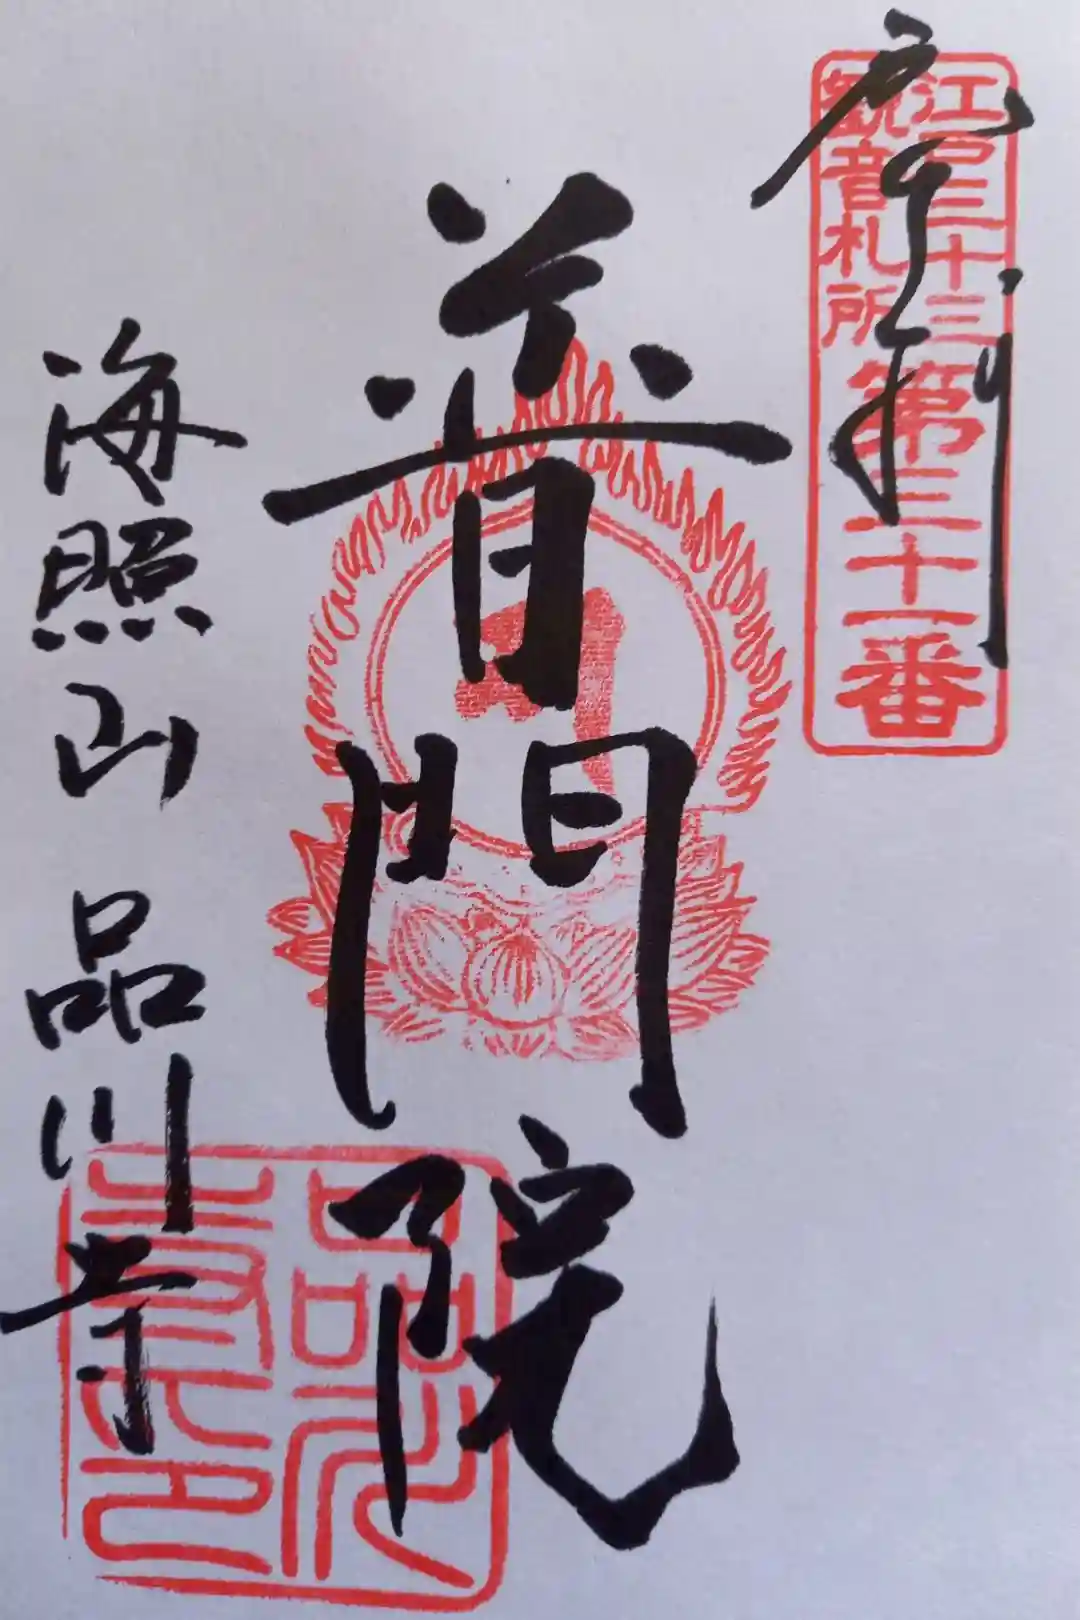 奉拝
江戸三十三
観音札所
第三十一番
普門院
海照山 品川寺
品川
寺印